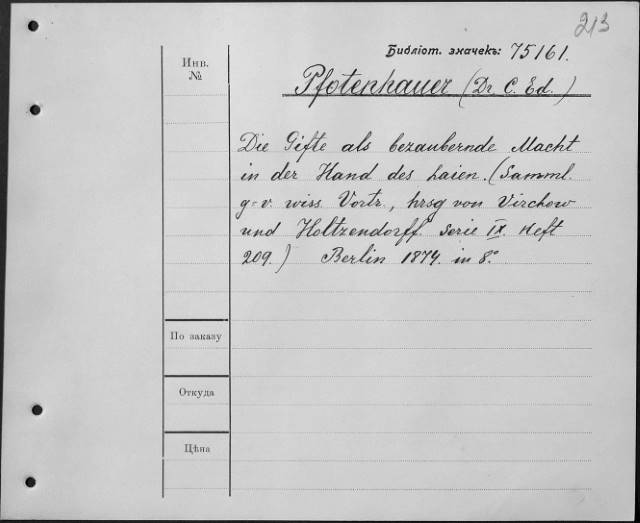 213
Библіот. значекъ: 75161.
Инв.
№
Pfotenhauer (Dr. C. Ed.)
Die Gifte als bezaubernde Macht
in der Hand des Laien. (Samml.
g. v. wiss. Vortr., hrsg von Virchow
und Holtzendorff. Serie IX. Heft
209.) Berlin 1874. in 8°.
По заказу
Откуда
Цѣна